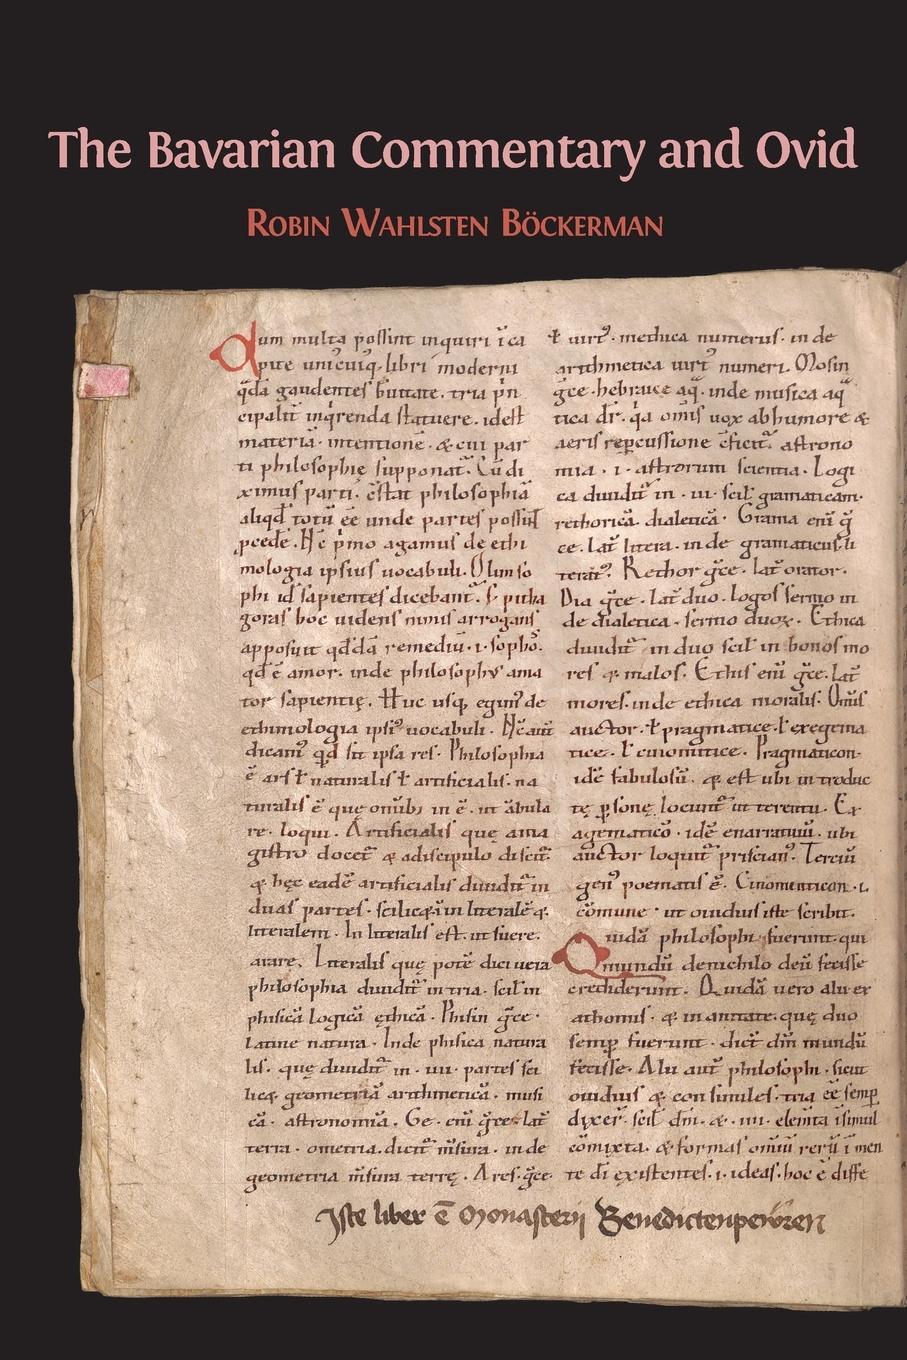 The Bavarian Commentary and Ovid
Robin Wahlsten Böckerman
um multa possint inquiri ī ca
pite uniꝰcuiꝙ libri moderni
q̄dā gaudentes breuitate. tria p̄n
cipalit̄ inq̇renda statuere. idest
materiā. intentionē. & cui par
ti philosophie supponat̄. Cū di
ximus parti. c̄stat philosophiā
aliqd̄ totū eē unde partes possīt
ꝓcede. H̄c ṗmo agamus de ethi
mologia ipsius uocabuli. Olim so
phi id sapientes dicebant̄. S; pitha
goras hoc uidens nimis arrogans
apposuit qd̄dā remediū. i. sophos.
qd̄ ē amor. inde philosophꝰ ama
tor sapientię. Huc usq; egimꝰ de
ethimologia ipsiꝰ uocabuli. N̄c aūt
dicamꝰ qd̄ sit ipsa res. Philosophia
ē ars ł naturalis ł artificialis. na
turalis ē quę omībꝫ in ē. ut ābula
re. loqui. Artificialis quę a ma
gistro docet̄ & a discipulo discit̄.
& hęc eadē artificialis diuidit̄ in
duas partes. scilicet in literalē &
litteralem. In literalis est. ut suere.
arare. Literalis quę potē dici uera
philosophia diuidit̄ in tria. scil̄ in
phisicā logicā ęthicā. Phisin gr̄ce.
latine natura. Inde phisica natura
lis. quę diuidit̄ in .iiii. partes sci
licę geometriā arithmeticā. musi
cā. astronomiā. Ge. eni gr̄ce lat̄
terra. ometria. dicit̄ m̄sura. inde
geometria m̄sura terrę. Ares. gr̄ce
ł uirtꝰ. methica numerus. inde
arithmetica uirtꝰ numeri. Mosin
gr̄ce. hebraice aq̄. inde musica aq̄
tica dr̄. q̇a omīs uox ab humore &
aeris reꝑcussione efficit̄. astrono
mia. i. astrorum scientia. Logi
ca diuidit̄ in .iii. scil̄ gramaticam.
rethoricā. dialeticā. Grama eni gr̄
ce. lat̄ littera. inde gramaticus li
teratꝰ. Rethor gr̄ce. lat̄ orator.
Dia gr̄ce. lat̄ duo. logos sermo in
de dialetica. sermo duoꝝ. Ethica
diuidit̄ in duo scil̄ in bonos mo
res & malos. Ethis eni gr̄ce. lat̄
mores. inde ethica moralis. Omīs
auctor. ł pragmatice. ł exegema
tice. ł cinomitice. Pragmaticon.
idē fabulosū. & est ubi introduc
tę ꝑsonę locunt̄ ut terentiꝰ. Ex
agematicō. idē enarratiuū. ubi
auctor loquit̄ ut priscianꝰ. Terciū
genꝰ poematis ē. Cinomenticon. i.
cōmune. ut ouidius iste scribit.
Quidā philosophi fuerunt qui
mundū de nichilo deū fecisse
crediderunt. Quidā uero alii ex
athomis. & inanitate. quę duo
semꝑ fuerunt. dict̄ dm̄ mundū
fecisse. Alii aut̄ philosophi. sicut
ouidius & consimiles. tria eē semꝑ
dixer̄. scil̄ dm̄. & .iiii. elemīta ī simul
cōmixta. & formas omiū rerū ī men
te di existentes. i. ideas. hoc ē diffe
Iste liber ē Monasterij Benedictenpewren